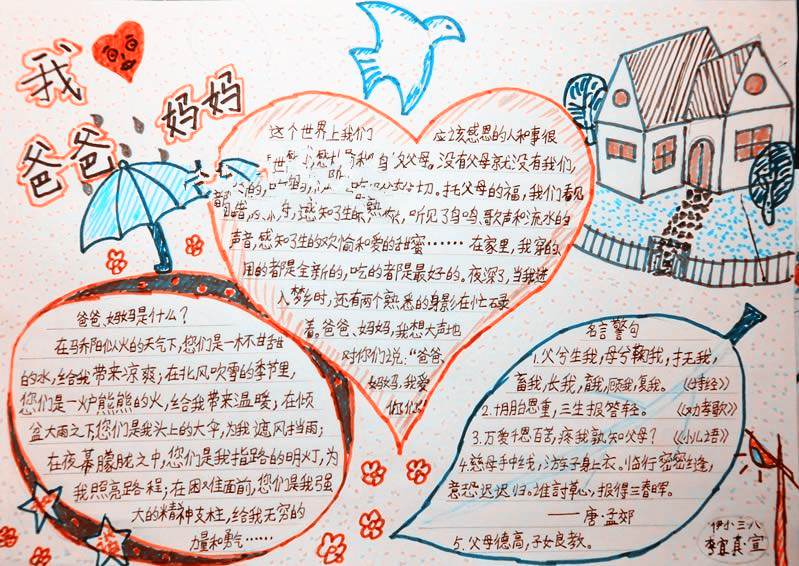 我
爸爸
妈妈
这个世界上我们 应该感恩的人和事很
父母。没有父母就没有我们,
切。托父母的福,我们看见
感知了生 听见了鸟鸣、歌声和流水的
声音,感知了生的欢愉和爱的甜蜜……在家里,我穿的
用的都是全新的,吃的都是最好的。夜深了,当我进
入梦乡时,还有两个熟悉的身影在忙碌
着。爸爸、妈妈,我想大声地
对你们说:“爸爸、
妈妈,我爱
你们!
爸爸、妈妈是什么?
在乔阳似火的天气下,您们是一杯甘甜
的水,给我带来凉爽;在北风吹雪的季节里,
您们是一炉熊熊的火,给我带来温暖;在倾
盆大雨之下,您们是我头上的大伞,为我遮风挡雨;
在夜幕朦胧之中,您们是我指路的明灯,为
我照亮路程;在困难面前,您们是我强
大的精神支柱,给我无穷的
力量和勇气……
名言警句
1.父兮生我,母兮鞠我,抚我,
畜我,长我,育我,顾我,复我。《诗经》
2.十月胎恩重,三生报答轻。《劝孝歌》
3.万爱千恩百苦,疼我孰知父母?《小儿语》
4.慈母手中线,游子身上衣。临行密密缝,
意恐迟迟归。谁言寸草心,报得三春晖。
——唐·孟郊
5.父母德高,子女良教。
伊小三八
李宜真·宣